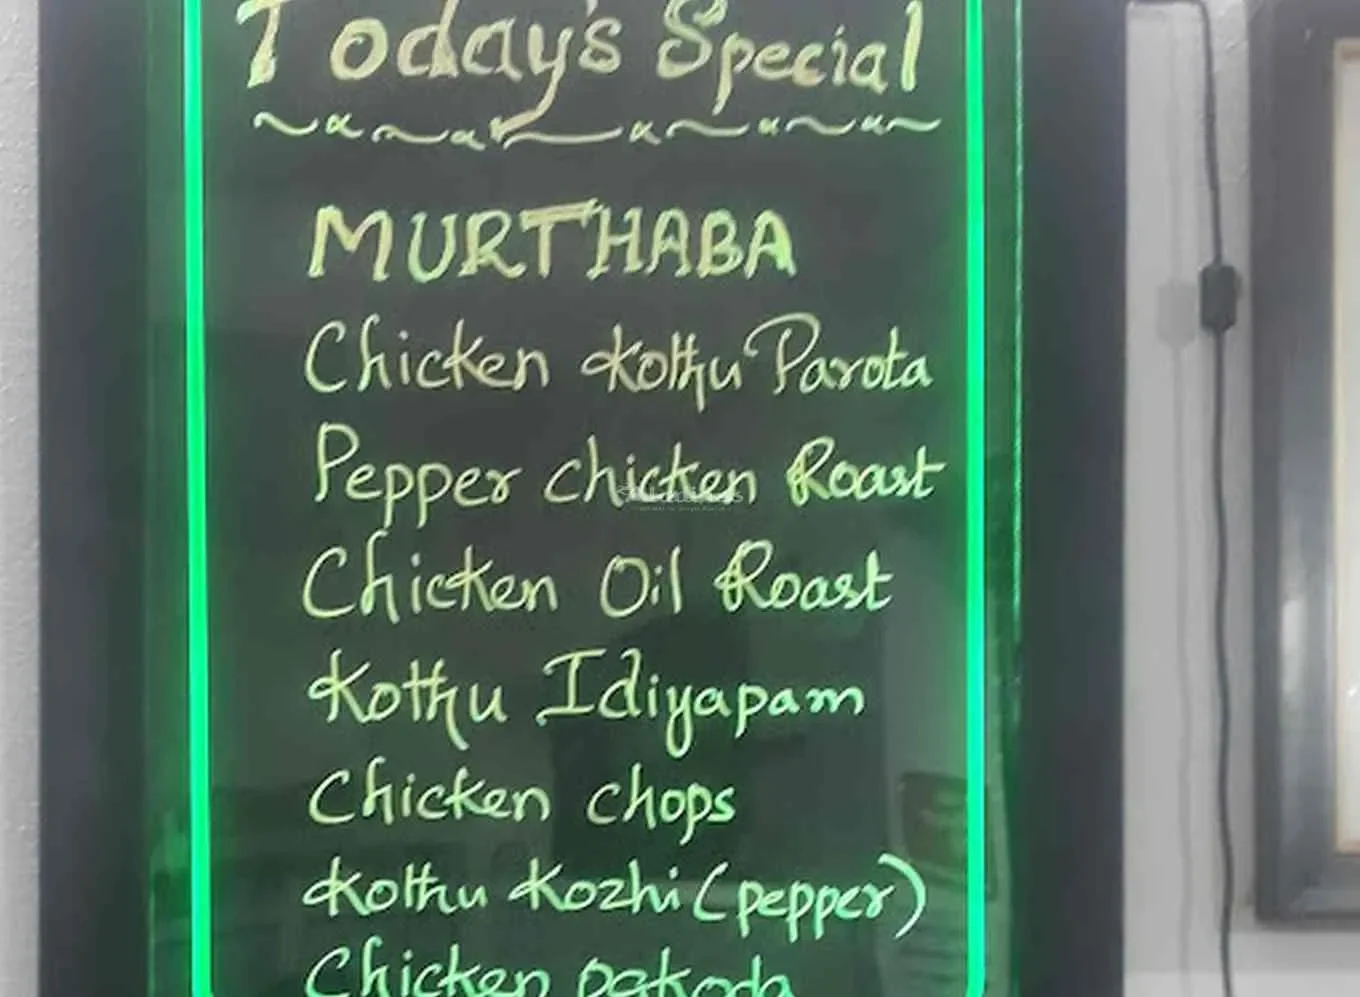 Today's Special
MURTHABA
Chicken Kothu Parota
Pepper chicken Roast
Chicken Oil Roast
Kothu Idiyapam
Chicken chops
Kothu Kozhi (pepper)
Chicken pakoda